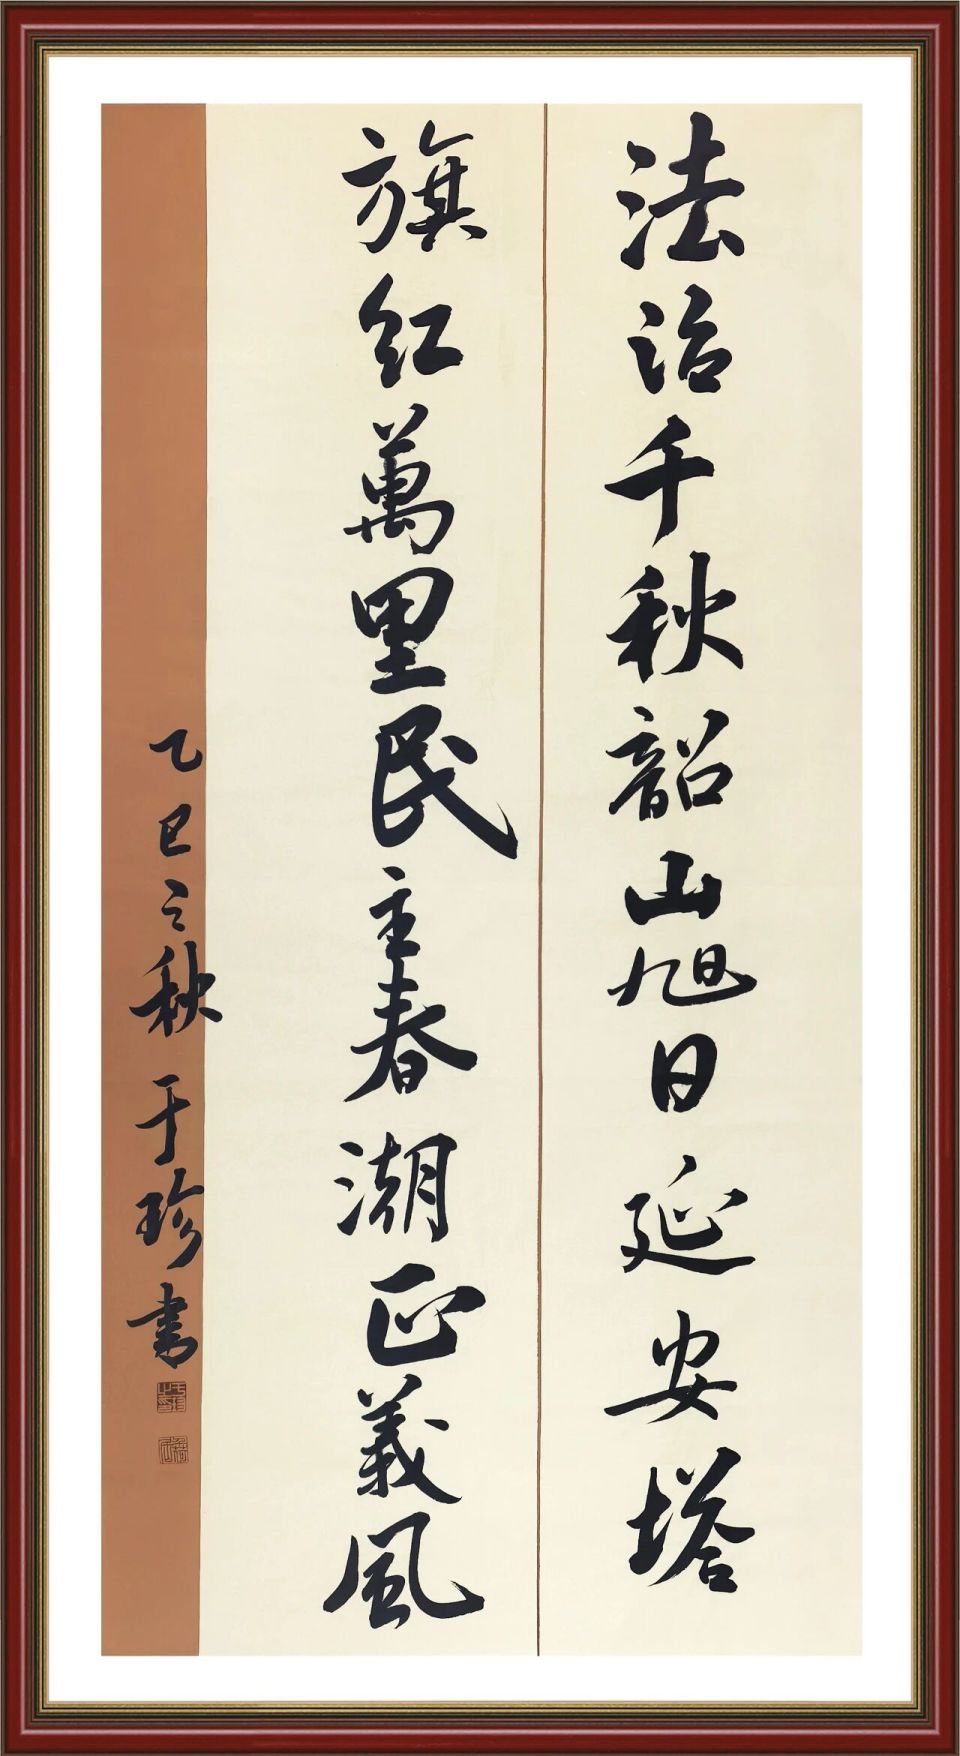 法治千秋韶山旭日延安塔
旗红萬里民主春潮正義風
乙巳之秋于珍书